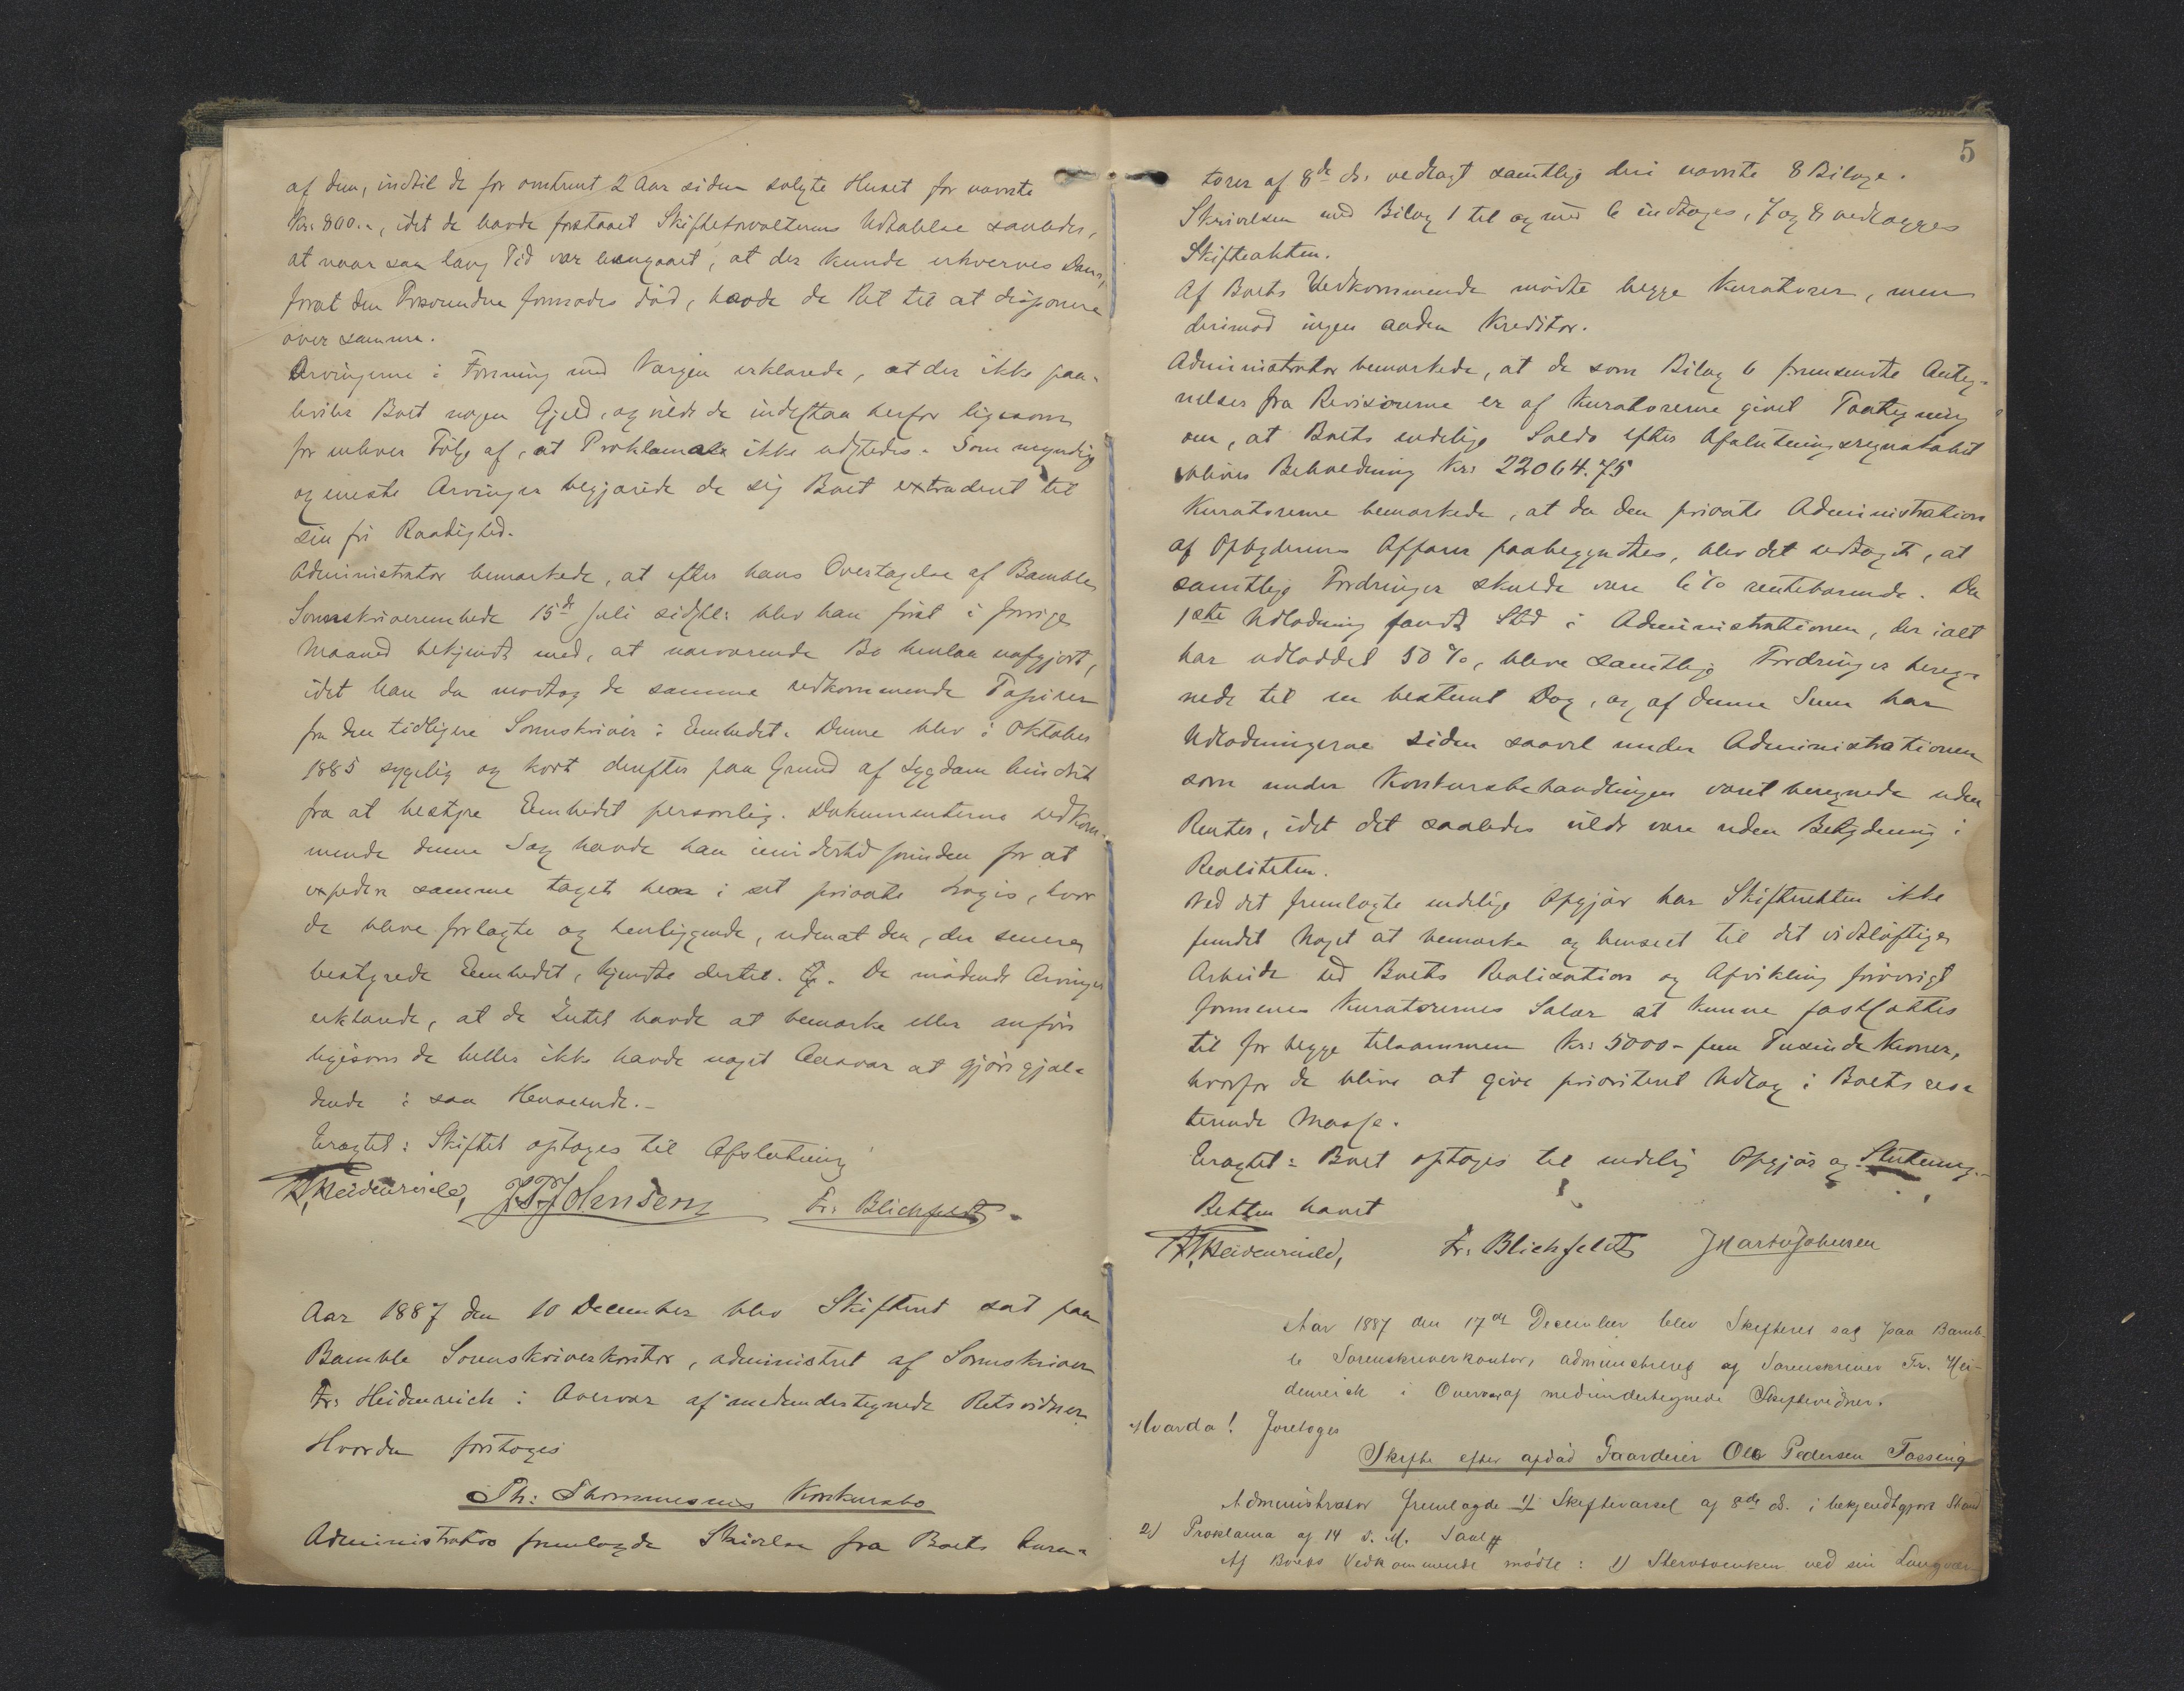 af dem, indtil de for omtrent 2 Aar siden solgte Huset for nævnte
Kr. 800.-, idet de havde forstaaet Skifteforvalterens Udtalelse saaledes,
at naar saa lang Tid var hengaaet, at der kunde erhverves Dom
forat den Forsvundne formodes død, havde de Ret til at disponere
over samme.
Arvingerne i Forening med Værgen erklærede, at der ikke paa-
hviler Boet nogen Gjeld, og vilde de indestaa herfor ligesom
for enhver Følge af, at Proklama ikke udstedes. Som myndige
og eneste Arvinger begjærede de sig Boet extraderet til
sin fri Raadighed.
Administrator bemærkede, at efter hans Overtagelse af Bamble
Sorenskriverembede 15de Juli sidstl: blev han først i forrige
Maaned bekjendt med, at nærværende Bo henlaa uafgjort,
idet han da modtog de samme vedkommende Papirer
fra den tidligere Sorenskriver i Embedet. Denne blev i Oktober
1885 sygelig og kort derefter paa Grund af Sygdom hindret
fra at bestyre Embedet personlig. Dokumenterne vedkom-
mende denne Sag havde han imidlertid forinden for at
expedere samme taget hen i sit private Logis, hvor
de bleve forlagte og henliggende, udenat den, der senere
bestyrede Embedet, kjendte dertil. De mødende Arvinger
erklærede, at de Intet havde at bemærke eller anføre
ligesom de heller ikke havde noget Ansvar at gjøre gjæl-
dende i saa Henseende.-
Eragtet: Skiftet optages til Afslutning
Fr. Heidenreich, J. P. Johnsen Fr. Blichfeldt.
Aar 1887 den 10 December blev Skifteret sat paa
Bamble Sorenskriverkontor, administret af Sorenskriver
Fr: Heidenreich i Overvær af medundertegnede Retsvidner.
Hvorda foretoges
Th: Thommesens Konkursbo
Administrator fremlagde Skrivelse fra Boets Kura-
5
torer af 8de ds. vedlagt samtlige deri nævnte 8 Bilage.
Skrivelsen med Bilag 1 til og med 6 indtages, 7 og 8 vedlægges
Skifteakten.
Af Boets Vedkommende mødte begge Kuratorer, men
derimod ingen anden Kreditor.
Administrator bemærkede, at de som Bilag 6 fremsendte Anteg-
nelser fra Revisorerne er af Kuratorerne givet Paategning
om, at Boets endelige Saldo efter Afslutningsregnskabet
bliver Beholdning Kr: 22064.75
Kuratorerne bemærkede, at da den private Administration
af Opbyderens Affærer paabegyndtes, blev det vedtaget, at
samtlige Fordringer skulde være 6 % rentebærende. Da
1ste Udlodning fandt Sted i Administrationen, der ialt
har udloddet 50 %, bleve samtlige Fordringer bereg-
nede til en bestemt Dag, og af denne Sum har
Udlodningerne siden saavel under Administrationen
som under Konkursbehandlingen været beregnede uden
Renter, idet det saaledes vilde være uden Betydning i
Realiteten.
Ved det fremlagte endelige Opgjør har Skifteretten ikke
fundet Noget at bemærke og henseet til det vidtløftige
Arbeide ved Boets Realisation og Afvikling forøvrigt
formenes Kuratorernes Salær at kunne fastsættes
til for begge tilsammen Kr: 5000 - fem Tusinde Kroner,
hvorfor de blive at give prioriteret Udlæg i Boets res-
terende Masse.
Eragtet: Boet optages til endelig Opgjør og Slutning.-
Retten hævet
Fr. Heidenreich, Fr: Blichfeldt J Martin Johnsen
Aar 1887 den 17de December blev Skifteret sat paa Bamb-
le Sorenskriverkontor, administreret af Sorenskriver Fr. Hei-
denreich i Overvær af medundertegnede Skiftevidner.
Hvorda! foretoges
Skifte efter afdød Gaardeier Ole Pedersen Tossing
Administrator fremlagde 1) Skiftevarsel af 8de ds. i bekjendtgjort Stand
2) Proklama af 14 s. M.
Af Boets Vedkommende mødte: 1) Stervboenken ved sin Laugvær-